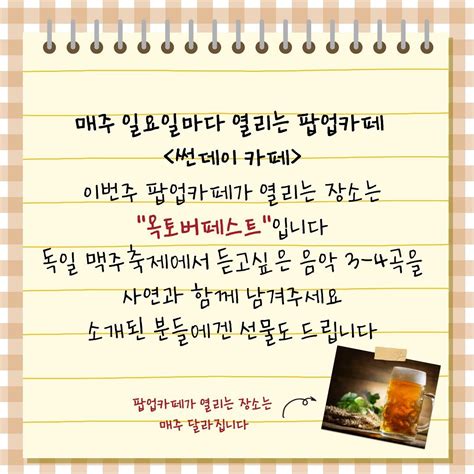 매주 일요일마다 열리는 팝업카페
<썬데이 카페>
이번주 팝업카페가 열리는 장소는
"옥토버페스트"입니다
독일 맥주축제에서 듣고싶은 음악 3-4곡을
사연과 함께 남겨주세요
소개된 분들에겐 선물도 드립니다
팝업카페가 열리는 장소는
매주 달라집니다